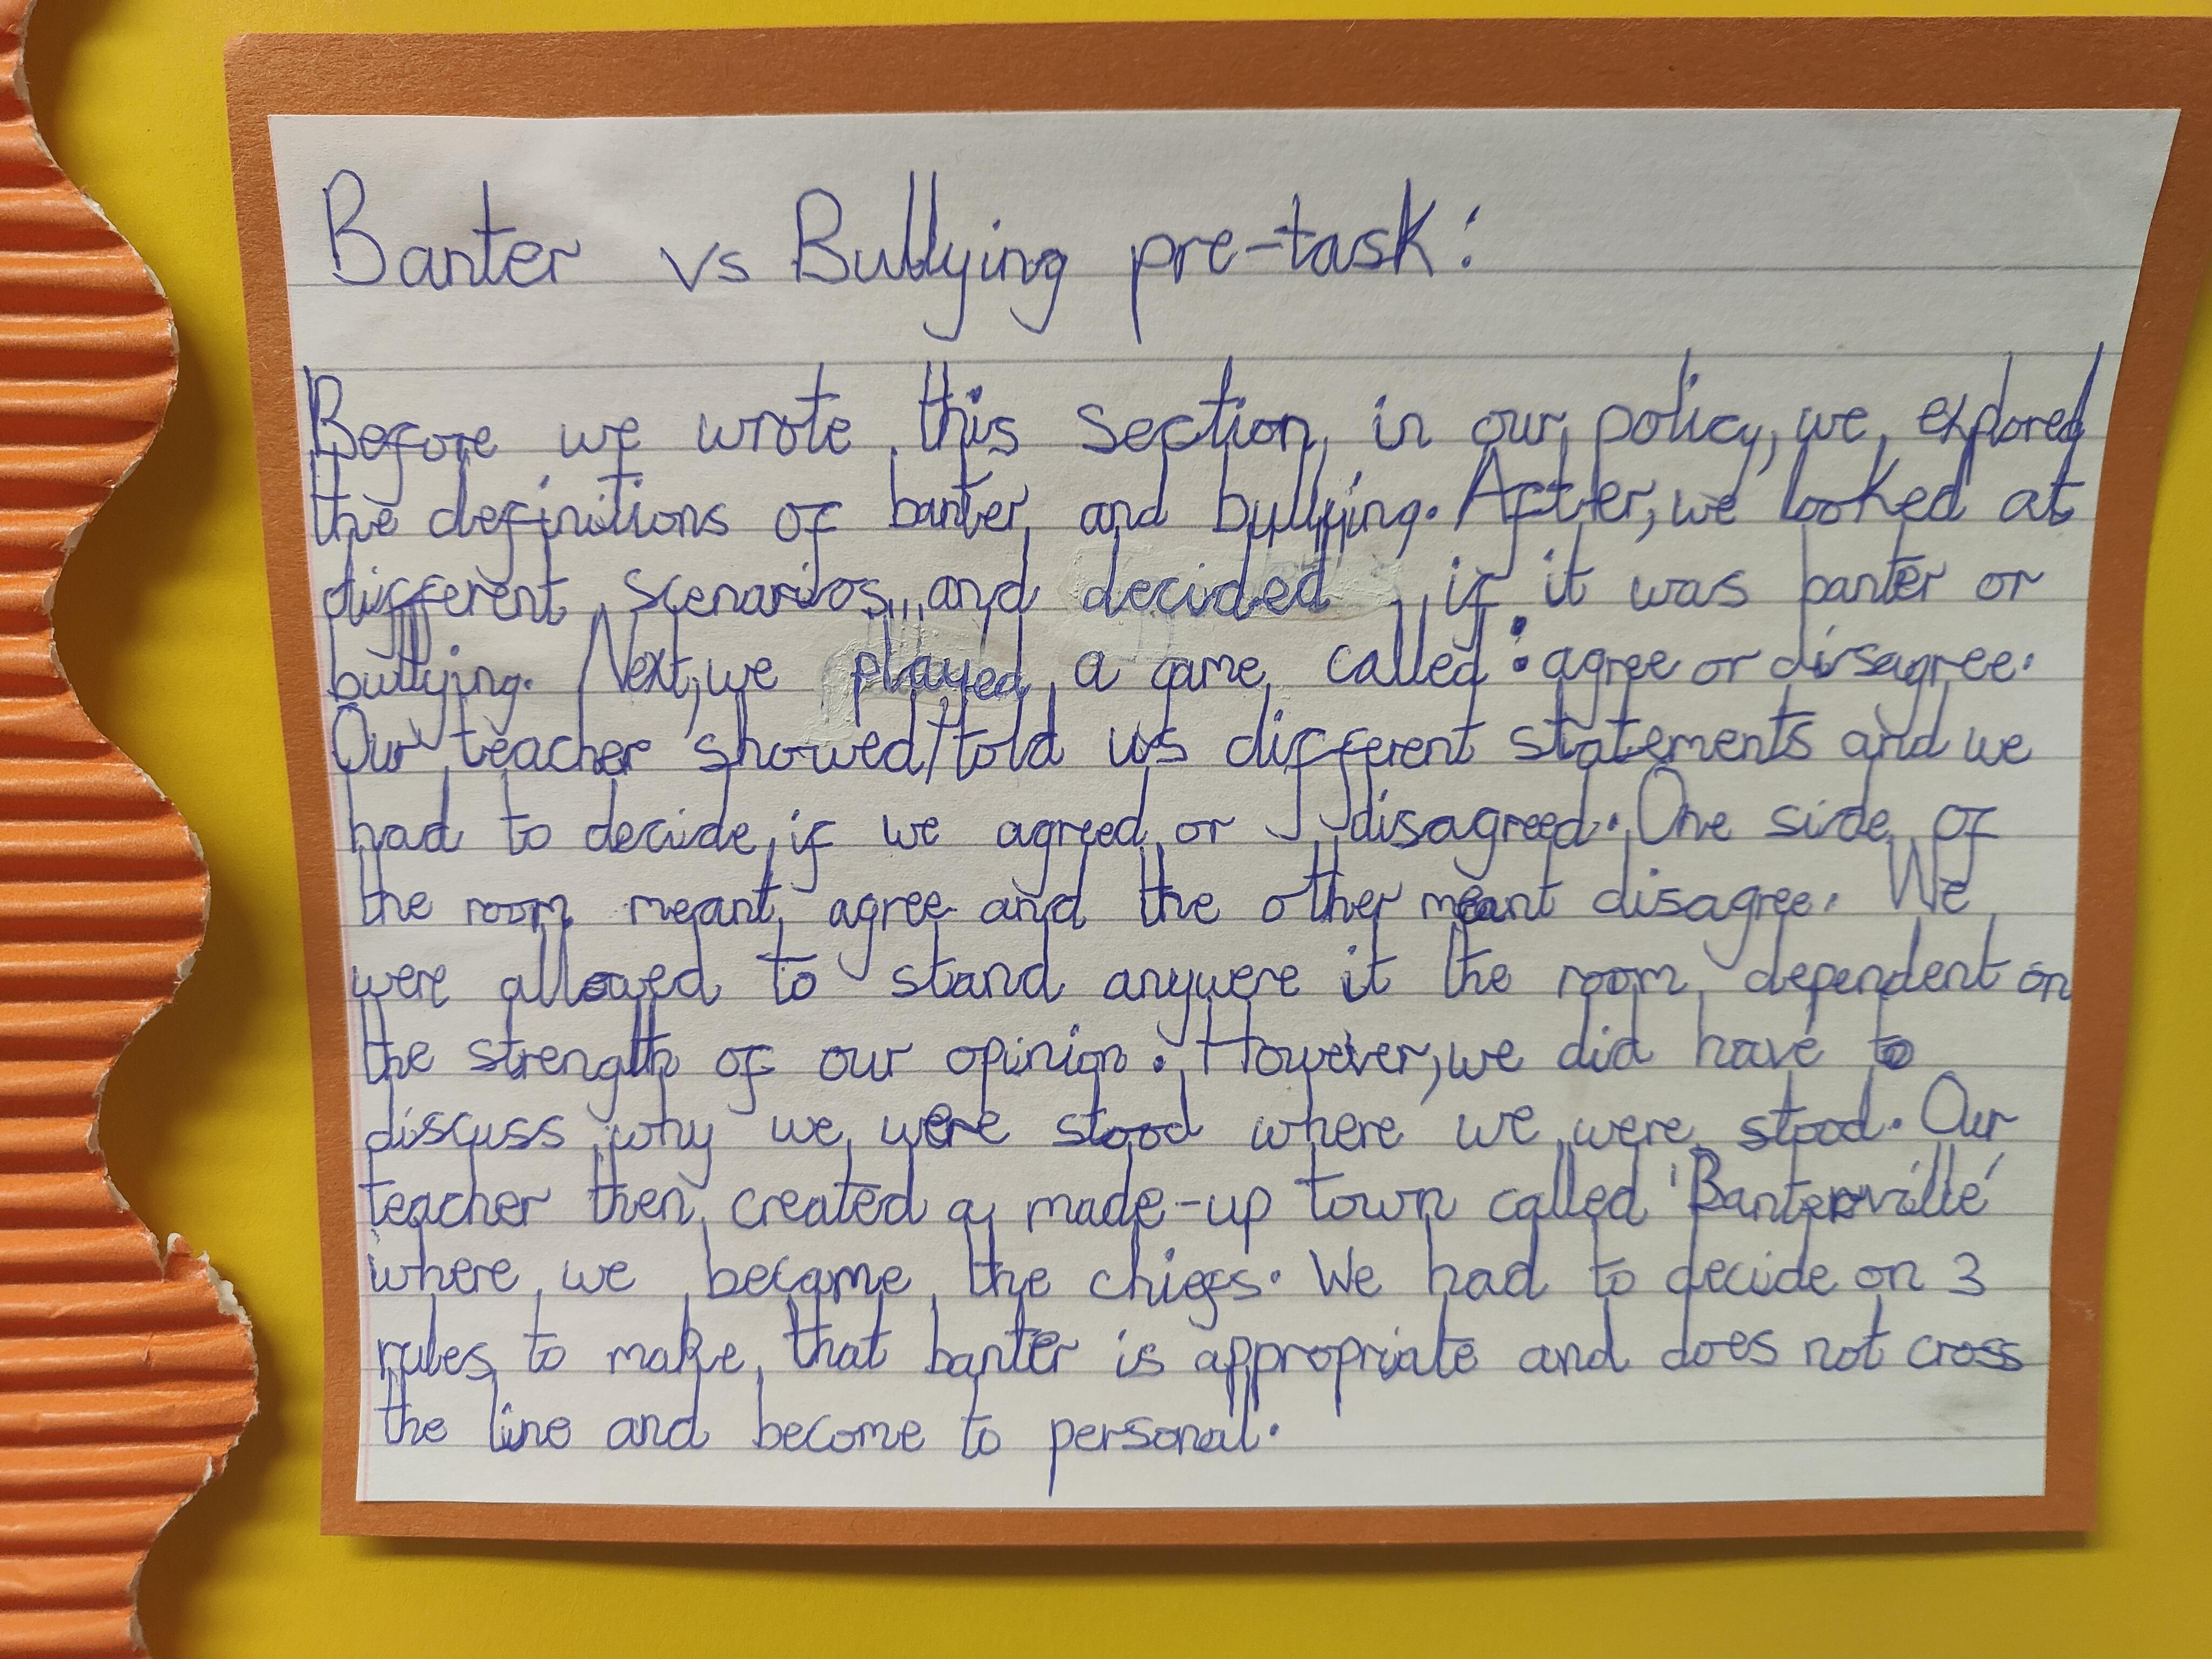 Banter vs Bullying pre-task:
Before we wrote this section in our policy, we explored
the definitions of banter and bullying. After, we looked at
different scenarios and decided if it was banter or
bullying. Next, we played a game called: agree or disagree.
Our teacher showed/told us different statements and we
had to decide if we agreed or disagreed. One side of
the room meant agree and the other meant disagree. We
were allowed to stand anywere it the room dependent on
the strength of our opinion. However, we did have to
discuss why we were stood where we were stood. Our
teacher then created a made-up town called 'Banterville'
where we became the chiefs. We had to decide on 3
rules to make that banter is appropriate and does not cross
the line and become to personal.